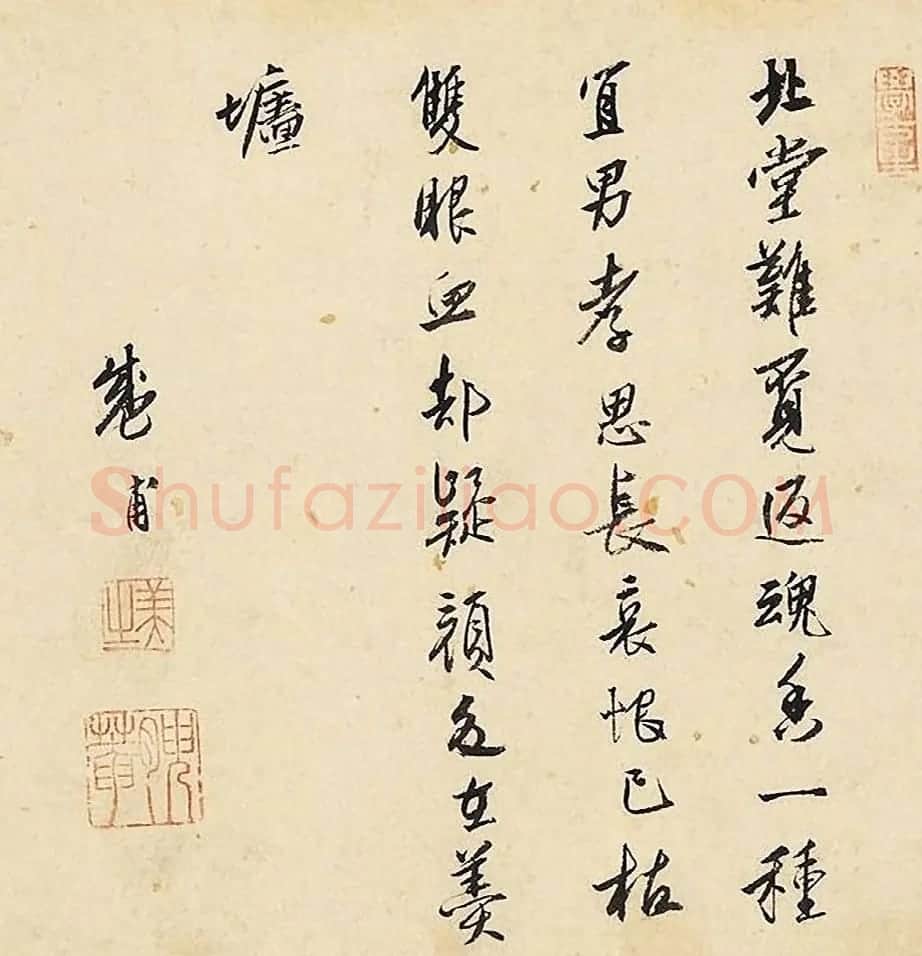 北堂難覓返魂香一種
宜男孝思長哀恨已枯
雙眼血却疑顔色在羹
墻
葳甫
Shufaziliao.COM